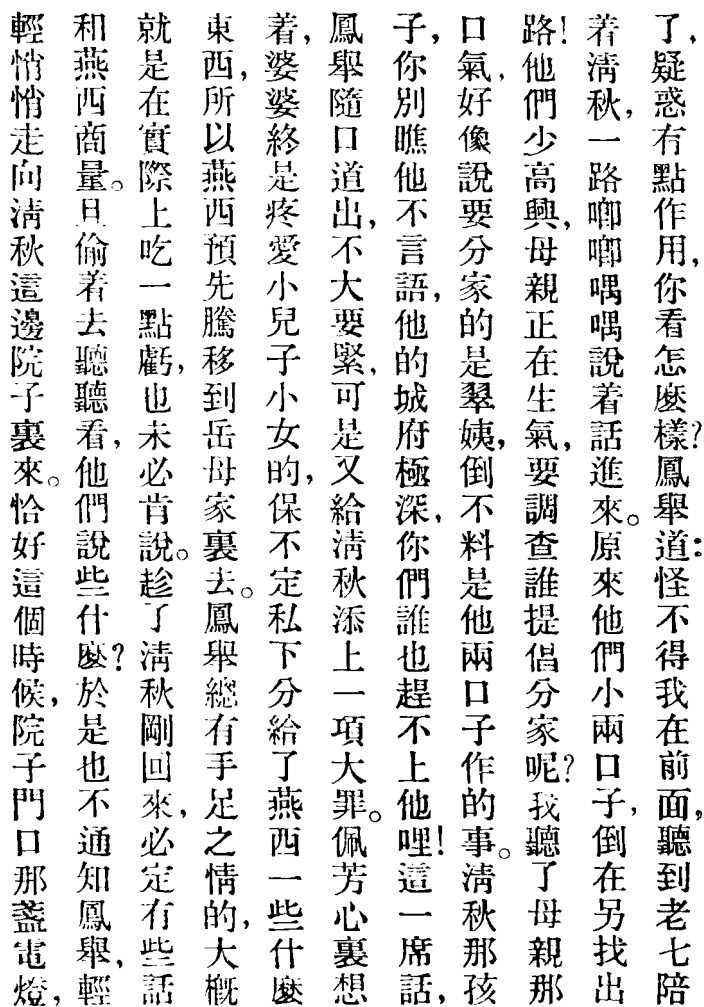 了，疑惑有點作用，你看怎麽樣？鳳舉道：怪不得我在前面，聽到老七陪
着淸秋，一路啣啣喁喁說着話進來。原來他們小兩口子，倒在另找出
路！他們少高興，母親正在生氣，要調查誰提倡分家呢？我聽了母親那
口氣，好像說要分家的是翠姨，倒不料是他兩口子作的事。淸秋那孩
子，你別瞧他不言語，他的城府極深，你們誰也趕不上他哩！這一席話，
鳳舉隨口道出，不大要緊，可是又給淸秋添上一項大罪。佩芳心裏想
着，婆婆終是疼愛小兒子小女的，保不定私下分給了燕西一些什麽
東西，所以燕西預先騰移到岳母家裏去。鳳舉總有手足之情的，大槪
就是在實際上吃一點虧，也未必肯說。趁了淸秋剛回來，必定有些話
和燕西商量。且偷着去聽聽看，他們說些什麽？於是也不通知鳳舉，輕
輕悄悄走向淸秋這邊院子裏來。恰好這個時候，院子門口那盞電燈，